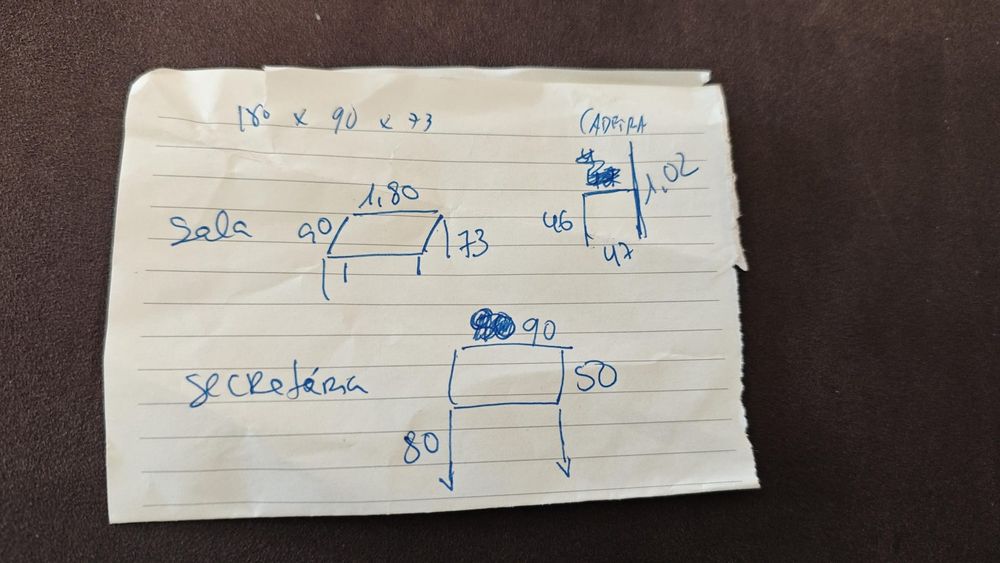 180 x 90 x 73
CADEIRA
1,02
46
47
Sala
1,80
90
73
secretária
90
50
80